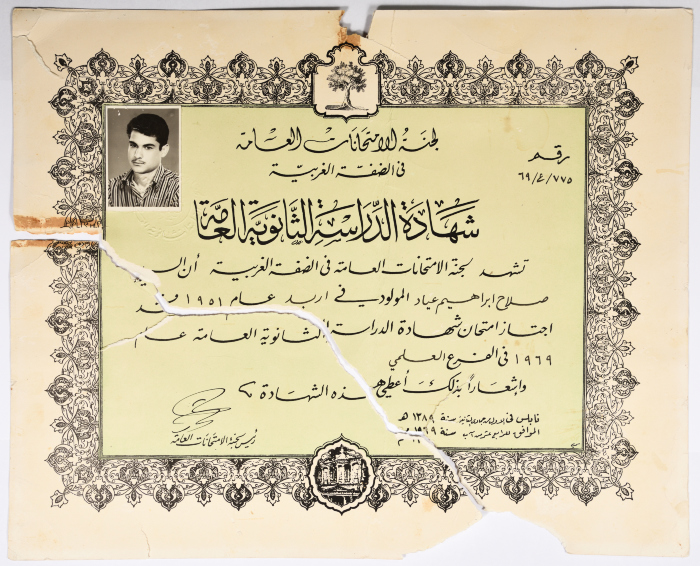 لجنة الامتحانات العامة
في الضفة الغربية
رقم
٦٩/ع/٧٧٥
شهادة الدراسة الثانوية العامة
تشهد لجنة الامتحانات العامة في الضفة الغربية أن السيد
صلاح ابراهيم عياد المولود في اربد عام ١٩٥١ قد
اجتاز امتحان شهادة الدراسة الثانوية العامة عام
١٩٦٩ في الفرع العلمي
وإشعاراً بذلك أعطي هذه الشهادة
نابلس في سنة ١٣٨٩ هـ
الموافق سنة ١٩٦٩ م
رئيس لجنة الامتحانات العامة